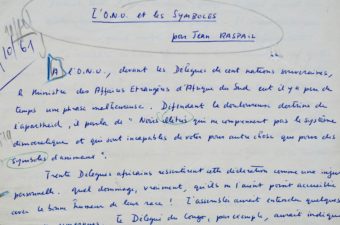 L'O.N.U. et les SYMBOLES
par Jean RASPAIL
10/61
A l'O.N.U., devant les Délégués de cent nations souveraines,
le Ministre des Affaires Etrangères d'Afrique du Sud eut il y a peu de
temps une phrase malheureuse. Défendant la douloureuse doctrine de
l'apartheid, il parla de "Noirs illettrés qui ne comprennent pas le système
démocratique et qui sont incapables de voter pour autre chose que pour des
symboles d'animaux".
Trente Délégués africains ressentirent cette déclaration comme une injure
personnelle. Quel dommage, vraiment, qu'ils ne l'aient point accueillie
avec la bonne humeur de leur race ! L'assemblée aurait entendu quelques
Le Délégué du Congo, par exemple, aurait indiqué